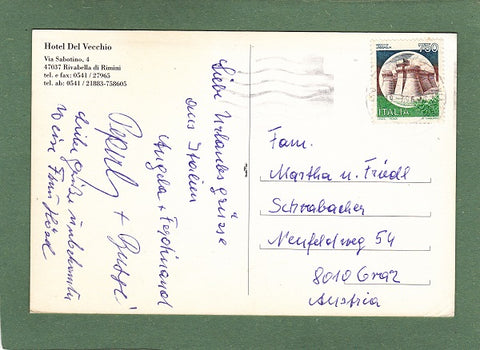 Hotel Del Vecchio
Via Sabotino, 4
47037 Rivabella di Rimini
tel. e fax: 0541 / 27965
tel. ab: 0541 / 21883-758605
Liebe Urlaubsgrüsse
aus Italien
Angela + Ferdinand
+
750
ITALIA
Fam.
Martha u. Friedl
Schrabacher
Neufeldweg 54
8010 Graz
Austria